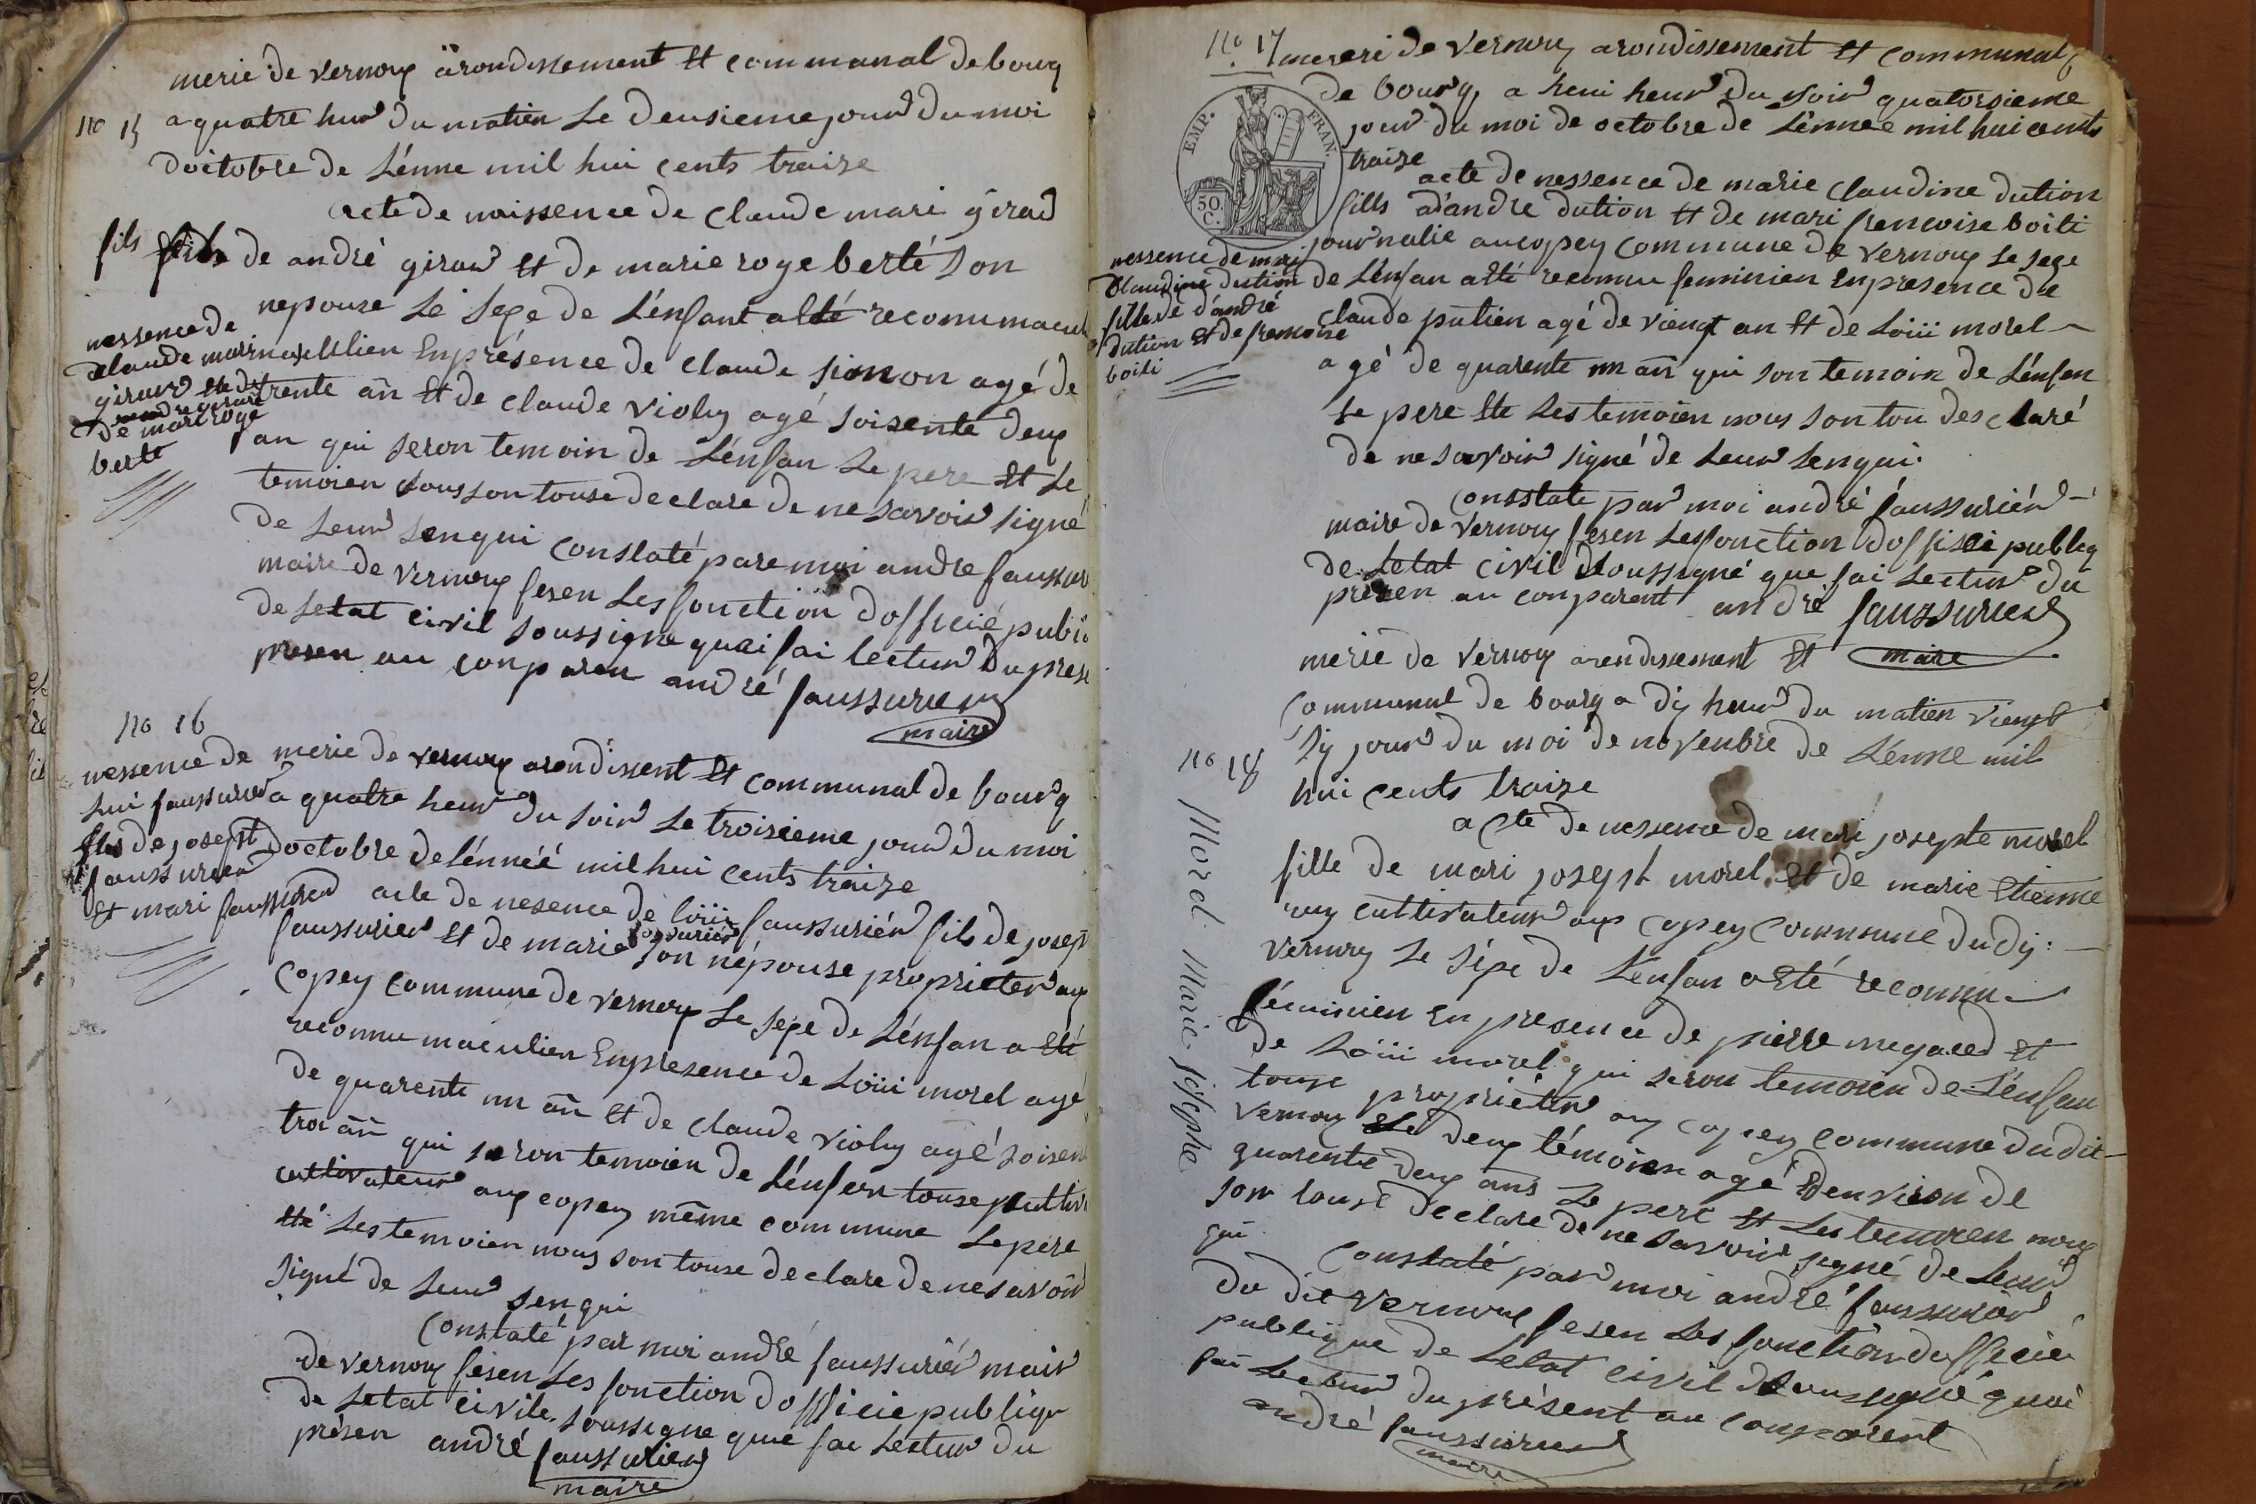 merie de vernoux arondissement Et communal de bourg
no 15
a quatre heur du matien Le deusieme jour du moi
doictobre de L'énne mil hui cents traize
acte de naissence de claude mari girad
fils
de andré giraud Et de marie roge berté Son
nepouse Le Sexe de L'énfant a Eté reconnu
nessence de
claude mari
giraud
de mari roge
berte
Enprésence de claude simon agé de
trente an Et de claude violy agé soisente deux
an qui seron temoin de L'énfan Le pere Et Le
temoien nous son touse declare de ne savoir signé
de Leur senqui constaté pare moi andre
maire de vernoux fesen Les fonction dofficié
de Letat civil soussigne quai fai lectur du
presen au conparen andré faussurier
maire
no 16
nessence de
Lui faussurier
fils de joseph
faussurier
Et mari faussurier
merie de vernoux arondissent Et communal de bourg
a quatre heur du soir Le troisieme jour du moi
doctobre de l'énnéé mil hui cents traize
acte de nesence de Loiii faussuriér fils de joseph
faussurier Et de marie faussuriér son népouse proprieter aux
copey commune de vernoux Le sexe de L'énfan a Eté
reconnu maculien Enpresence de Loiii morel agé
de quarente un an Et de claude violy agé
troi an qui seron temoien de L'énfan touse
cultivateur aux copey même commune Le pere
Eté Les temoien nous son touse declare de ne savoir
signé de Leur senqui
Constaté par moi andré faussuriér mair
de vernoux fesen Les fonction dofficié publique
de Letat civile soussigne que fai Lectur du
présen andré faussurier
maire
no 17
mereri de vernoux arondissement Et communal
de bourg a heui heur du soir quatorsieme
jour du moi de octobre de L'énnee mil hui cents
traize
EMP. FRAN.
50. C.
acte de nessence de marie claudine dution
fills d'andre dution Et de mari frencoise boiti
journalie au copey commune de vernoux Le sexe
nessence de mari
Claudine dution
fille de d'andré
dution Et de francoise
boiti
de L'énfan a Eté reconnu feminien Enpresence de
claude putien agé de viengt an Et de Loiii morel
agé de quarente un an qui son temoin de L'énfen
Le pere Ete Les temoien nous son tou desclaré
de ne savoir signé de Leur senqui
Consstate par moi andré faussuriér
maire de vernoux fesen Les fonction d'offisié publiq
de Letat civil soussigné que fai Lectur du
presen au conparent andré faussurier
maire
merie de vernoux arendissement Et
Communal de bourg a dix heur du matien viengt
no 18
Six jour du moi de novenbre de L'énne mil
hui cents traize
acte de nessence de mari josephte morel
fille de mari joseph morel Et de marie Etienne
rey cultivateur aux copey commune dudi
vernoux Le sexe de L'énfan a Eté reconnu
féminien Enpresence de pierre megard Et
de Loiii morel qui seron temoien de L'énfan
touse propriétér aux copey commune dudit
vernoux Le deux témoien agé denviron de
quarente deux ans Le pere Et Les temoien nous
son touse declare de ne savoir signé de Leur
qui
Constaté par moi andré faussurier
du dit vernoux fesen Les fonction dofficié
publique de Letat civil soussigné quai
fai Lectur du présent au conparent
andré faussurier
maire
Morel Marie-josephe